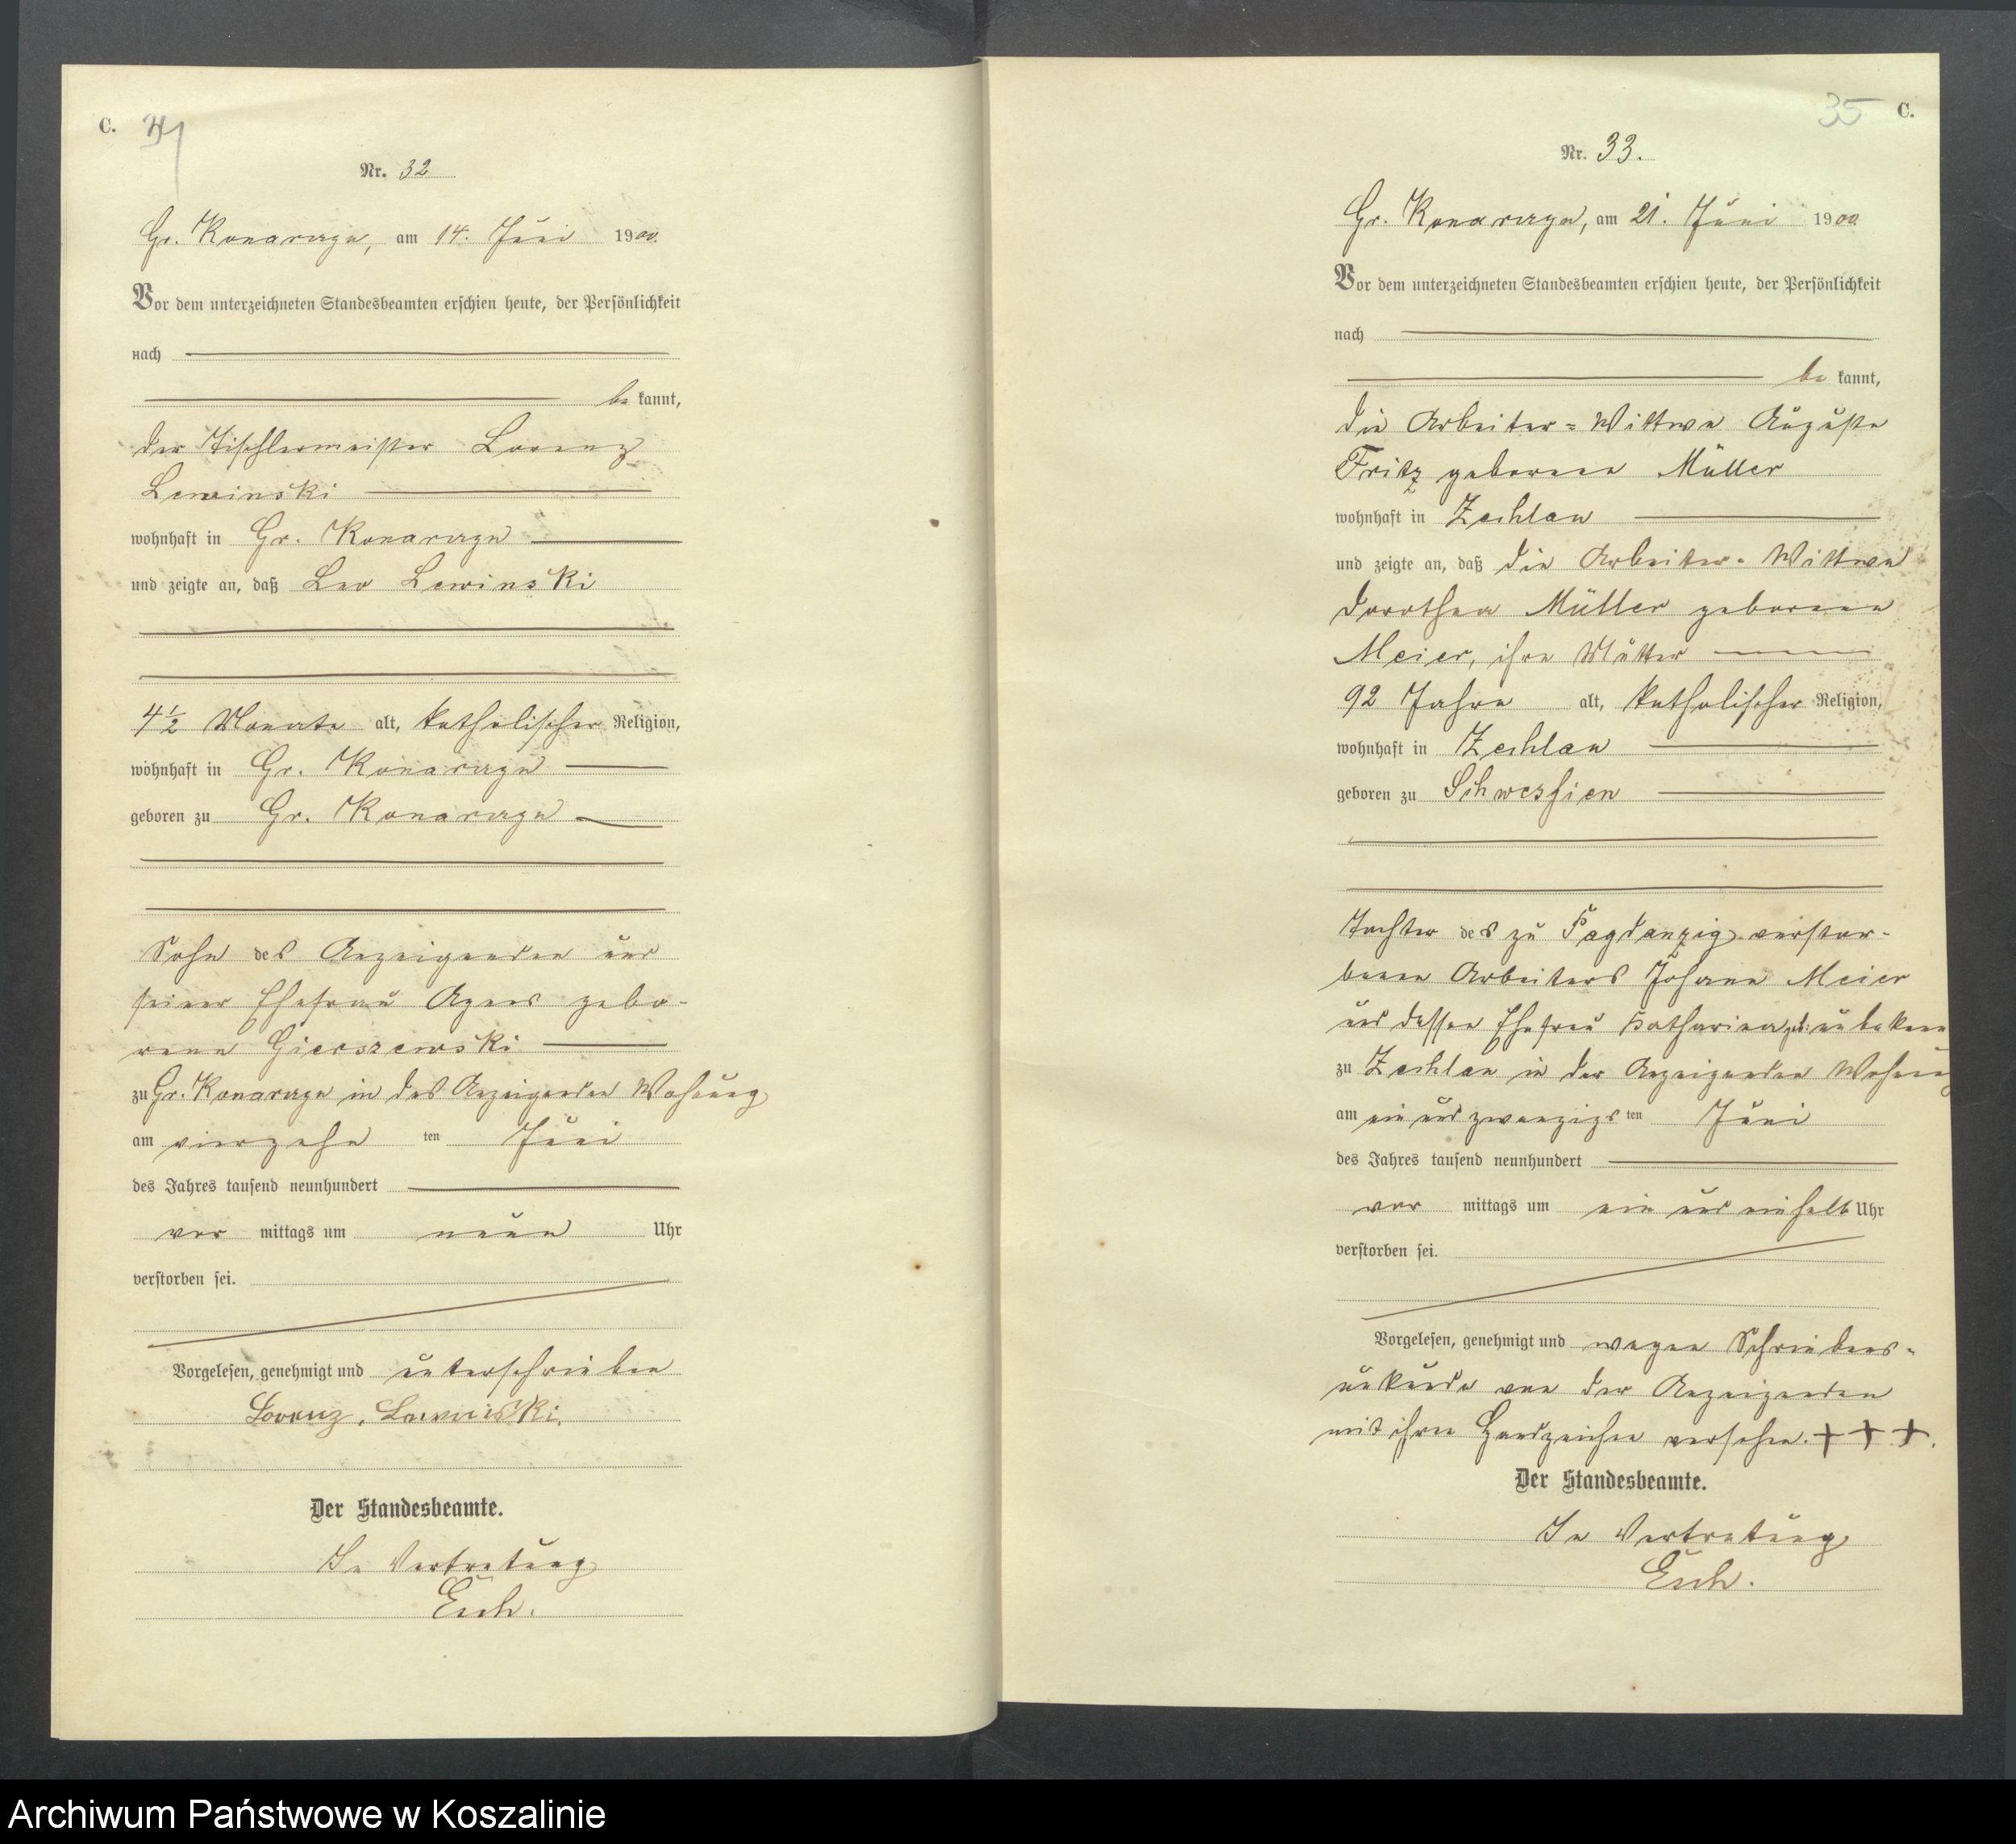 C.
Nr. 32
Gr. Konarczyn, am 14. Juni 1900.
Vor dem unterzeichneten Standesbeamten erschien heute, der Persönlichkeit
nach
be kannt,
der Tischlermeister Lorenz
Lewinski
wohnhaft in Gr. Konarczyn
und zeigte an, daß Leo Lewinski
4 1/2 Monate alt, katholischer Religion,
wohnhaft in Gr. Konarczyn
geboren zu Gr. Konarczyn
Sohn des Anzeigenden und
seiner Ehefrau Agnes gebo-
rene Gierszewski
zu Gr. Konarczyn in des Anzeigenden Wohnung
am vierzehn ten Juni
des Jahres tausend neunhundert
vor mittags um neun Uhr
verstorben sei.
Vorgelesen, genehmigt und unterschrieben
Lorenz. Lewinski.
Der Standesbeamte.
In Vertretung
Esch.
35 C.
Nr. 33.
Gr. Konarczyn, am 21. Juni 1900
Vor dem unterzeichneten Standesbeamten erschien heute, der Persönlichkeit
nach
be kannt,
die Arbeiter-Wittwe Auguste
Fritz geborene Müller
wohnhaft in Zechlau
und zeigte an, daß die Arbeiter-Wittwe
Dorothea Müller geborene
Meier, ihre Mutter
92 Jahre alt, katholischer Religion,
wohnhaft in Zechlau
geboren zu Schwessien
Tochter des zu Pagdanzig verstor-
benen Arbeiters Johann Meier
und dessen Ehefrau Katharina
zu Zechlau in der Anzeigenden Wohnung
am ein und zwanzigs ten Juni
des Jahres tausend neunhundert
vor mittags um ein und einhalb Uhr
verstorben sei.
Vorgelesen, genehmigt und wegen Schreibens-
unkunde von der Anzeigenden
mit ihren Handzeichen versehen. + + +.
Der Standesbeamte.
In Vertretung
Esch.
Archiwum Państwowe w Koszalinie